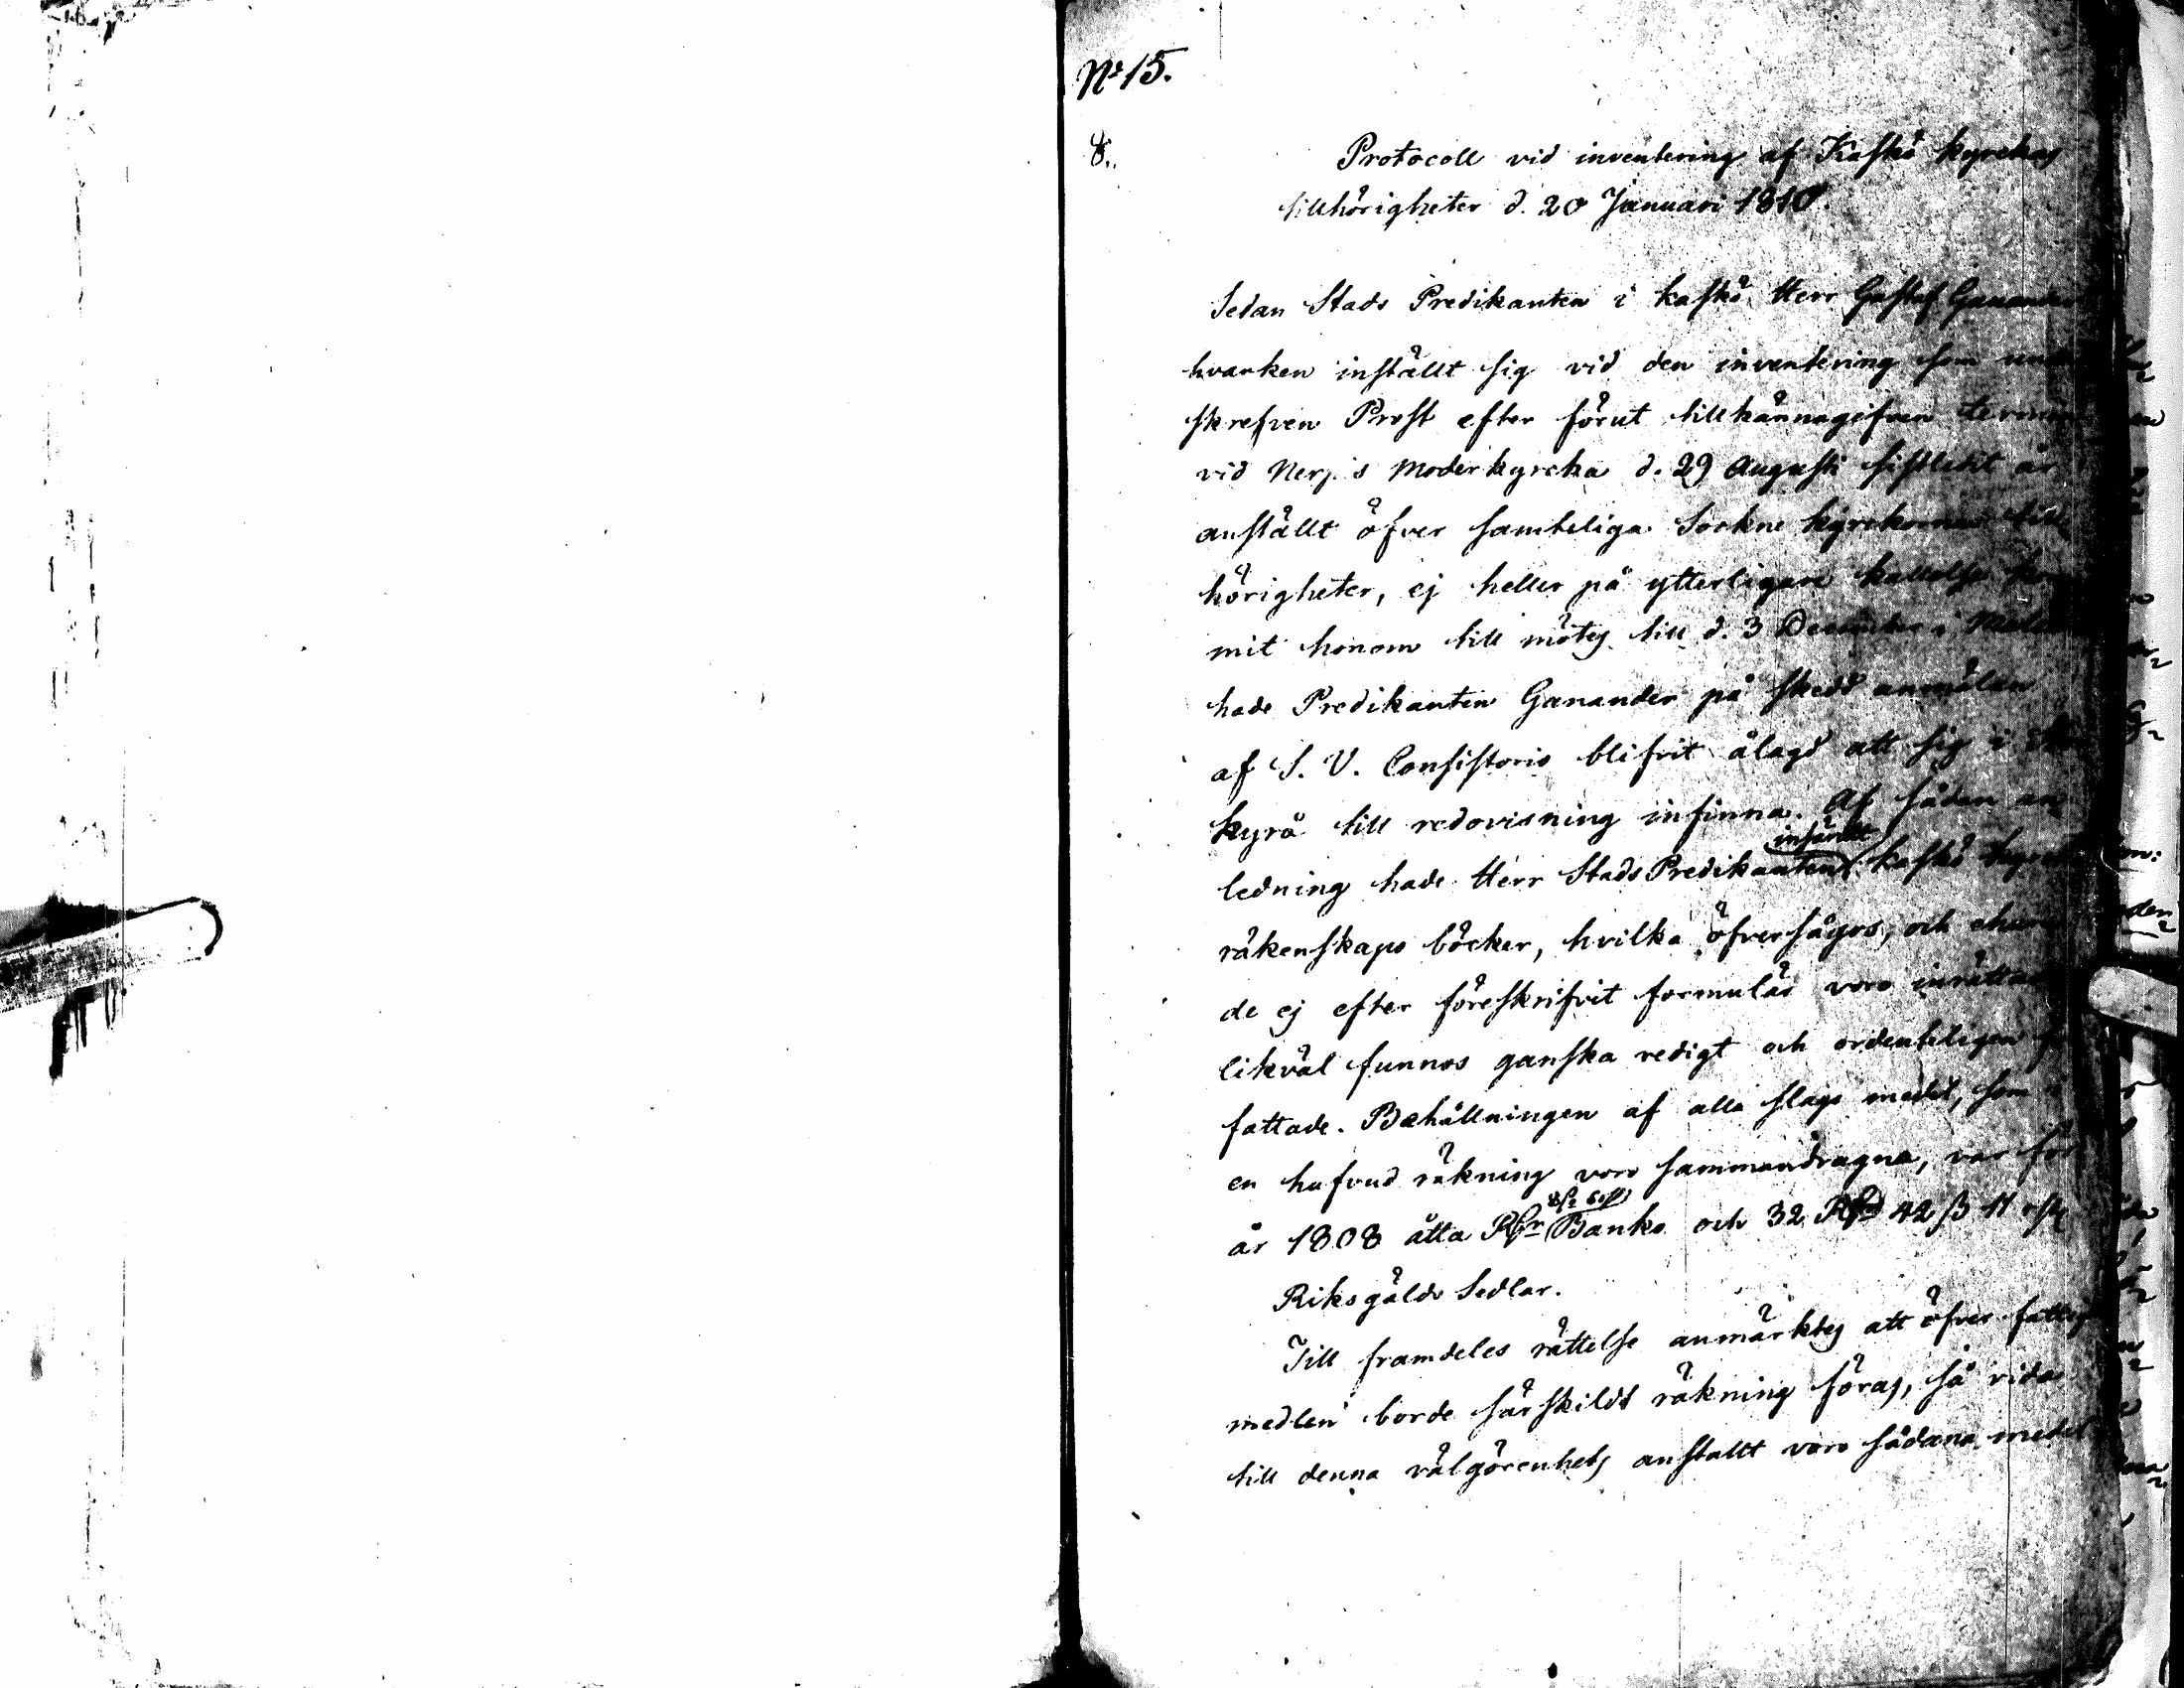 No 15.
8.
Protocoll vid inventering af Kaskö kyrckas
tillhörigheter d. 20 Januari 1810.
Sedan Stads Predikanten i Kaskö Herr Gustaf Ganander
hvarken inställt sig vid den inventering som
skrefven Prost efter förut tillkännagifven
vid Nerpis Moderkyrcka d. 29 Augusti sistledit år
anställt öfver samteliga Sockne kyrckornas
hörigheter, ej heller på ytterligare kallelse
mit honom till mötes till d. 3 December i
hade Predikanten Ganander på skedd anmälan
af S. V. Consistorio blifvit ålagd att sig i
kyrå till redovisning infinna. Af sådan an
ledning hade Herr Stads Predikanten insändt Kaskö
räkenskaps böcker, hvilka öfversågos, och
de ej efter föreskrifvit formulär voro
likväl funnos ganska redigt och ordenteligen
fattade. Behållningen af alla slags medel, som i
en hufvud räkning voro sammandragna, var för
år 1808 åtta Rdr Banko och 32 Rd 42 ß 11 rst
Riksgälds Sedlar.
Till framdeles rättelse anmärktes att öfver
medlen borde särskildt räkning föras, så vida
till denna välgörenhets anstallt voro sådana medel